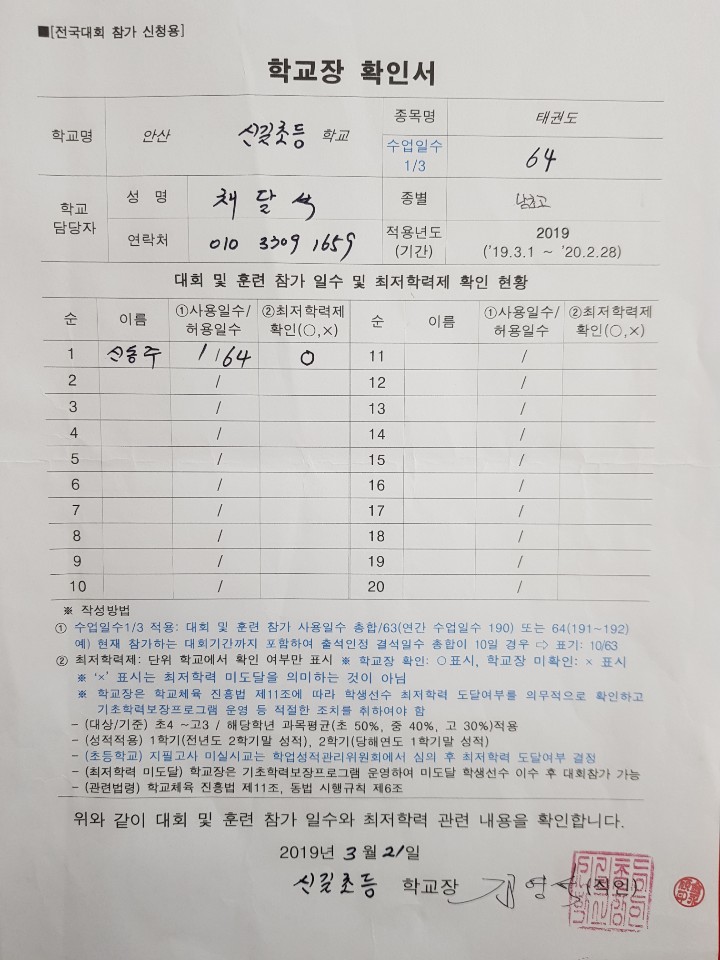 ■[전국대회 참가 신청용]
학교장 확인서
학교명 안산 신길초등 학교 종목명 태권도
수업일수 1/3 64
학교 담당자 성 명 채달석 종별 남초고
연락처 010 3309 1659 적용년도 (기간) 2019 ('19.3.1 ~ '20.2.28)
대회 및 훈련 참가 일수 및 최저학력제 확인 현황
순 이름 ①사용일수/허용일수 ②최저학력제 확인(○,×) 순 이름 ①사용일수/허용일수 ②최저학력제 확인(○,×)
1 신동주 1/64 O 11 /
2 / 12 /
3 / 13 /
4 / 14 /
5 / 15 /
6 / 16 /
7 / 17 /
8 / 18 /
9 / 19 /
10 / 20 /
※ 작성방법
① 수업일수1/3 적용: 대회 및 훈련 참가 사용일수 총합/63(연간 수업일수 190) 또는 64(191~192)
예) 현재 참가하는 대회기간까지 포함하여 출석인정 결석일수 총합이 10일 경우 ⇨ 표기: 10/63
② 최저학력제: 단위 학교에서 확인 여부만 표시 ※ 학교장 확인: ○표시, 학교장 미확인: × 표시
※ '×' 표시는 최저학력 미도달을 의미하는 것이 아님
※ 학교장은 학교체육 진흥법 제11조에 따라 학생선수 최저학력 도달여부를 의무적으로 확인하고
기초학력보장프로그램 운영 등 적절한 조치를 취하여야 함
- (대상/기준) 초4 ~고3 / 해당학년 과목평균(초 50%, 중 40%, 고 30%)적용
- (성적적용) 1학기(전년도 2학기말 성적), 2학기(당해연도 1학기말 성적)
- (초등학교) 지필고사 미실시교는 학업성적관리위원회에서 심의 후 최저학력 도달여부 결정
- (최저학력 미도달) 학교장은 기초학력보장프로그램 운영하여 미도달 학생선수 이수 후 대회참가 가능
- (관련법령) 학교체육 진흥법 제11조, 동법 시행규칙 제6조
위와 같이 대회 및 훈련 참가 일수와 최저학력 관련 내용을 확인합니다.
2019년 3월 21일
신길초등 학교장 김영 (직인)